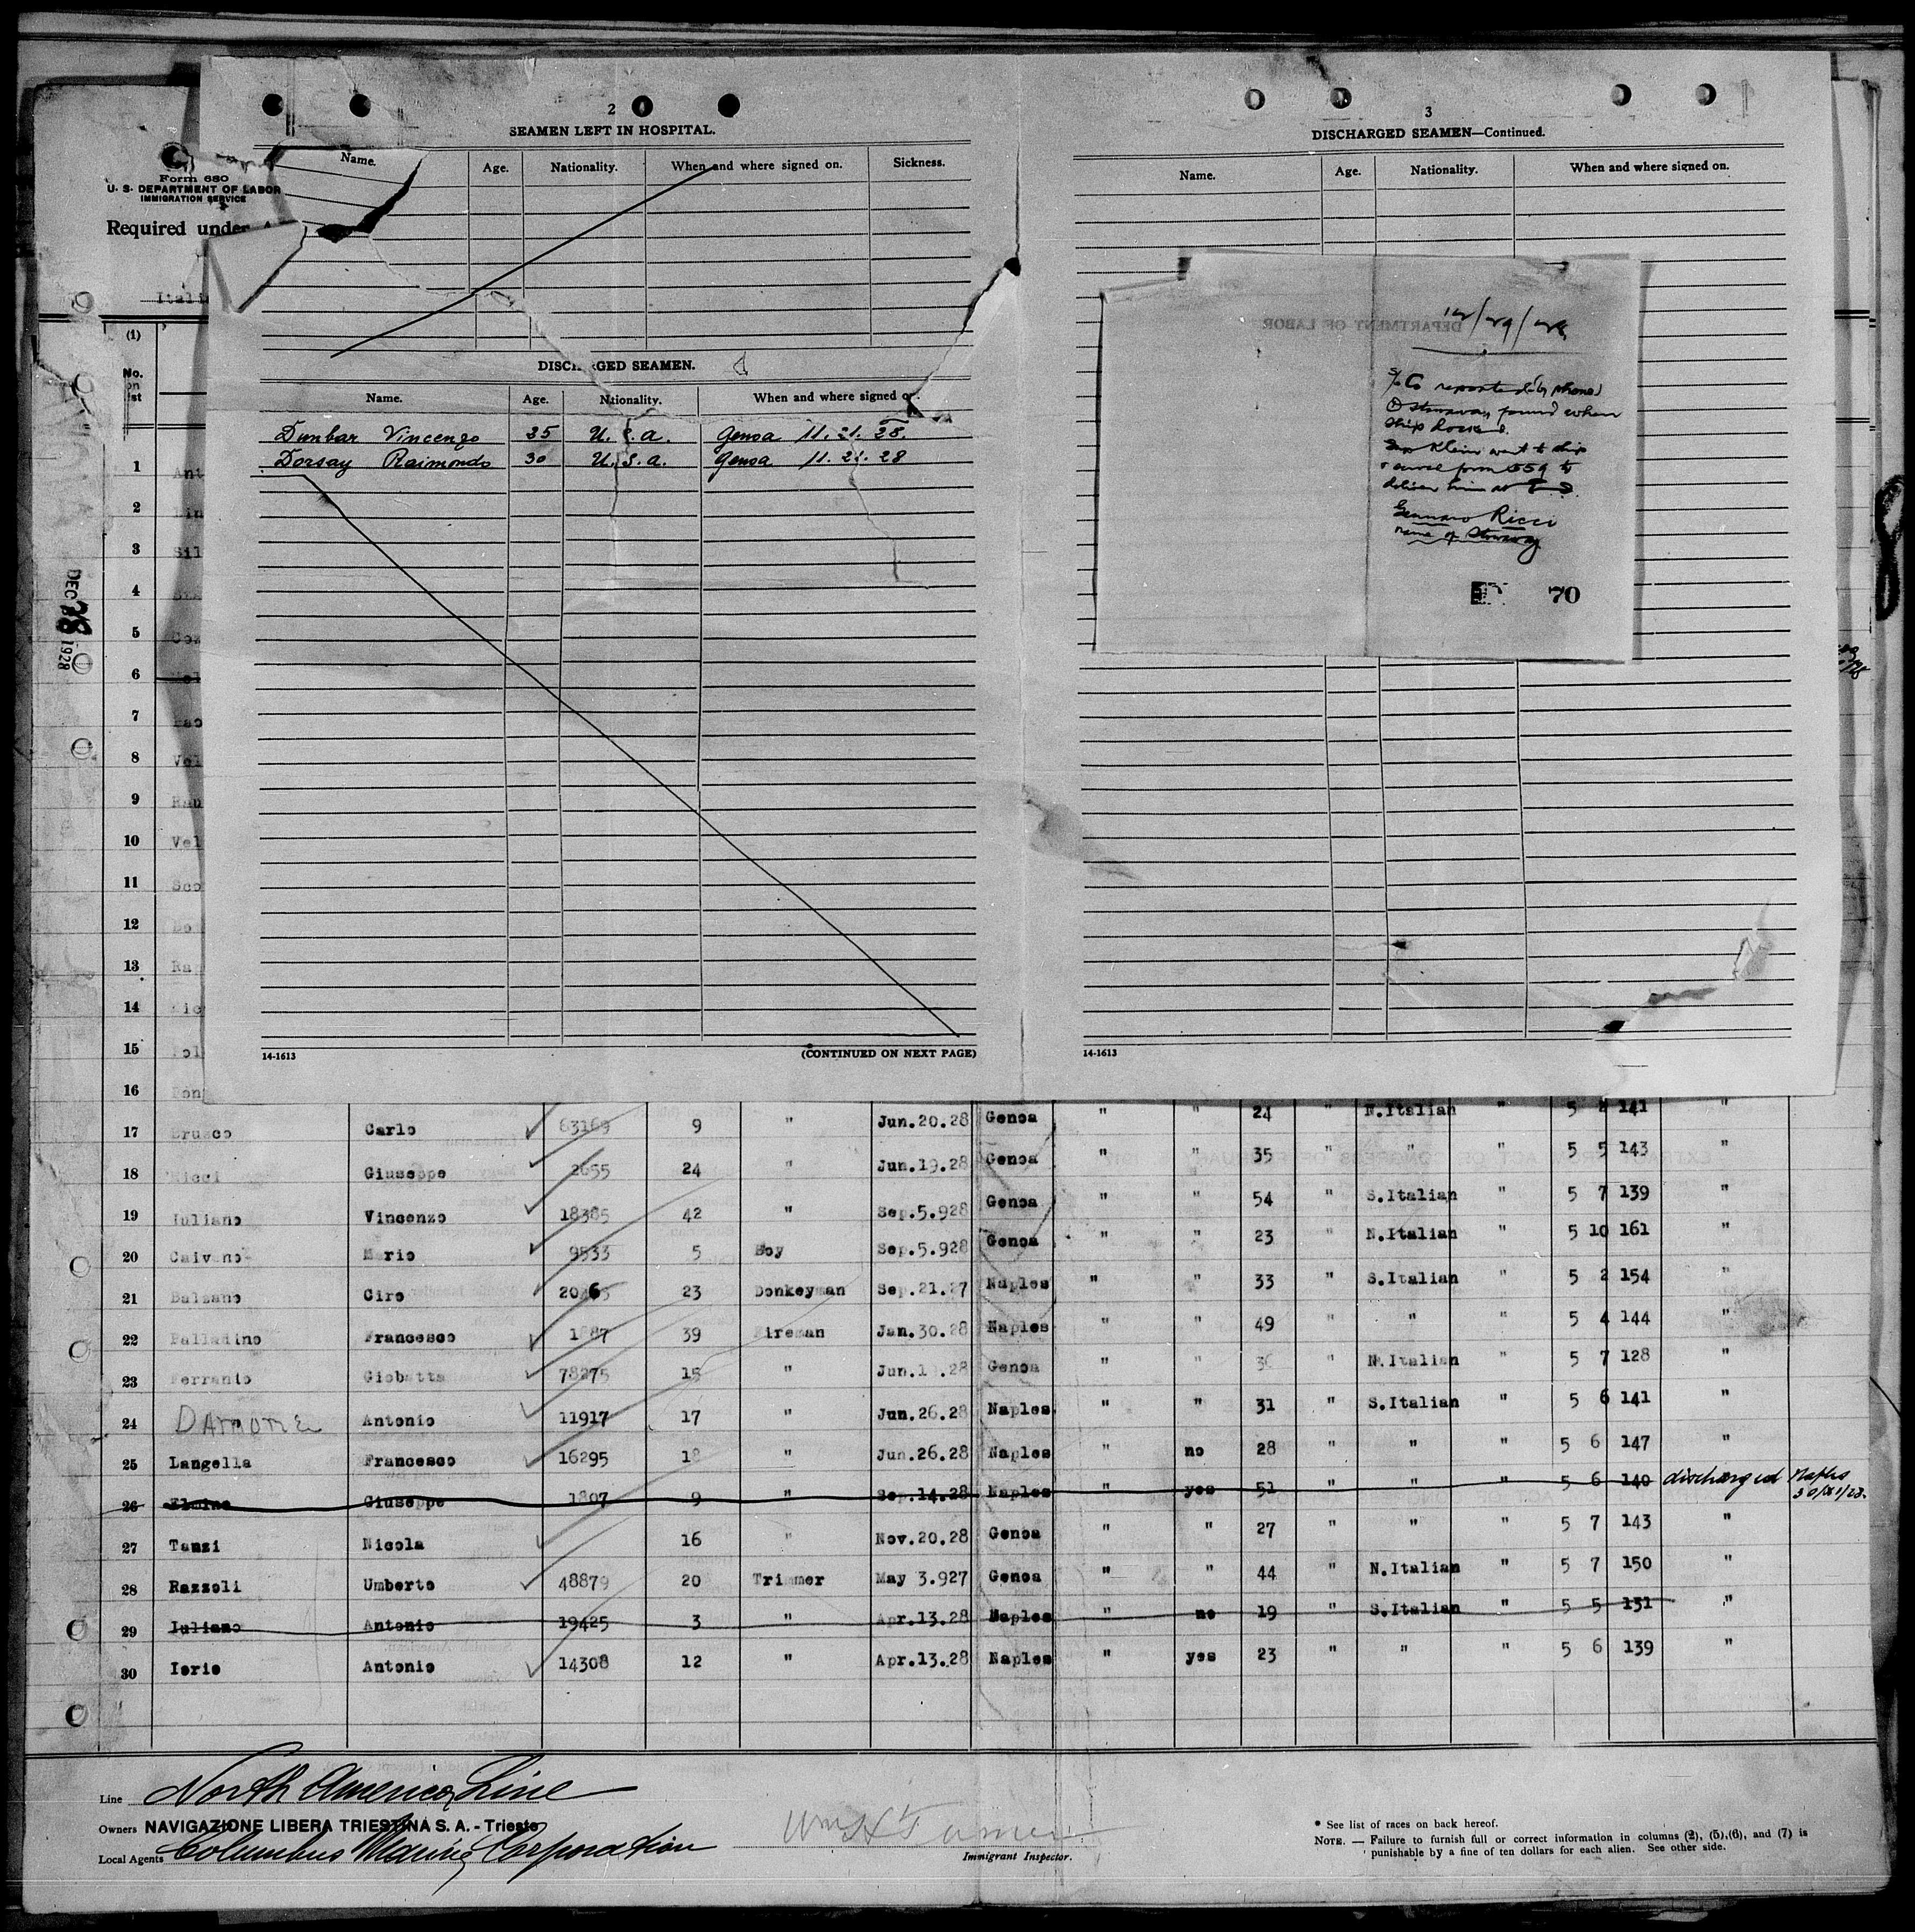 2
SEAMEN LEFT IN HOSPITAL.
Name. Age. Nationality. When and where signed on. Sickness.
DISCHARGED SEAMEN.
Name. Age. Nationality. When and where signed on.
Dunbar Vincenzo 35 U.S.a. Genoa 11.21.28.
Dorsay Raimondo 30 U.S.a. Genoa 11.21.28
14-1613 (CONTINUED ON NEXT PAGE)
3
DISCHARGED SEAMEN—Continued.
Name. Age. Nationality. When and where signed on.
DEPARTMENT OF LABOR
12/29/28
S/Co reported (by phone)
① Stowaway found when
ship docked.
Insp Klein went to ship
& served form 559 to
deliver him at
Gennaro Ricci
name of Stowaway
70
14-1613
Form 680
U. S. DEPARTMENT OF LABOR
IMMIGRATION SERVICE
Required under
Itali
(1)
No.
on
list
DEC 28 1928
1 Ant
2
3 Sil
4
5
6
7
8
9
10 Vel
11 Sco
12
13
14
15
16
17 Brusco Carlo 63169 9 " Jun.20.28 Genoa " " 24 " N.Italian " 5 2 141 "
18 Ricci Giuseppe 2655 24 " Jun.19.28 Genoa " " 35 " " " 5 5 143 "
19 Iuliano Vincenzo 18385 42 " Sep.5.928 Genoa " " 54 " S.Italian " 5 7 139 "
20 Caivano Mario 9533 5 Boy Sep.5.928 Genoa " " 23 " N.Italian " 5 10 161 "
21 Balzano Ciro 23 Donkeyman Sep.21.27 Naples " " 33 " S.Italian " 5 2 154 "
22 Palladino Francesco 39 Fireman Jan.30.28 Naples " " 49 " " " 5 4 144 "
23 Ferranio Giobatta 78275 15 " Genoa " " " N.Italian " 5 7 128 "
24 DAMONE Antonio 11917 17 " Jun.26.28 Naples " " 31 " S.Italian " 5 6 141 "
25 Langella Francesco 16295 18 " Jun.26.28 Naples " no 28 " " " 5 6 147 "
26 Giuseppe 1807 9 " Sep.14.28 Naples " yes 51 " " " 5 6 140 discharged Naples
30/XI/28.
27 Tanzi Nicola 16 " Nov.20.28 Genoa " " 27 " " " 5 7 143 "
28 Razzoli Umberto 48879 20 Trimmer May 3.927 Genoa " " 44 " N.Italian " 5 7 150 "
29 Iuliano Antonio 19425 3 " Apr.13.28 Naples " no 19 " S.Italian " 5 5 131 "
30 Iorio Antonio 14308 12 " Apr.13.28 Naples " yes 23 " " " 5 6 139 "
Line North America Line
Owners NAVIGAZIONE LIBERA TRIESTINA S. A. - Trieste
Local Agents Columbus Marine Corporation
Wm H Turner
Immigrant Inspector.
* See list of races on back hereof.
NOTE. — Failure to furnish full or correct information in columns (2), (5), (6), and (7) is
punishable by a fine of ten dollars for each alien. See other side.